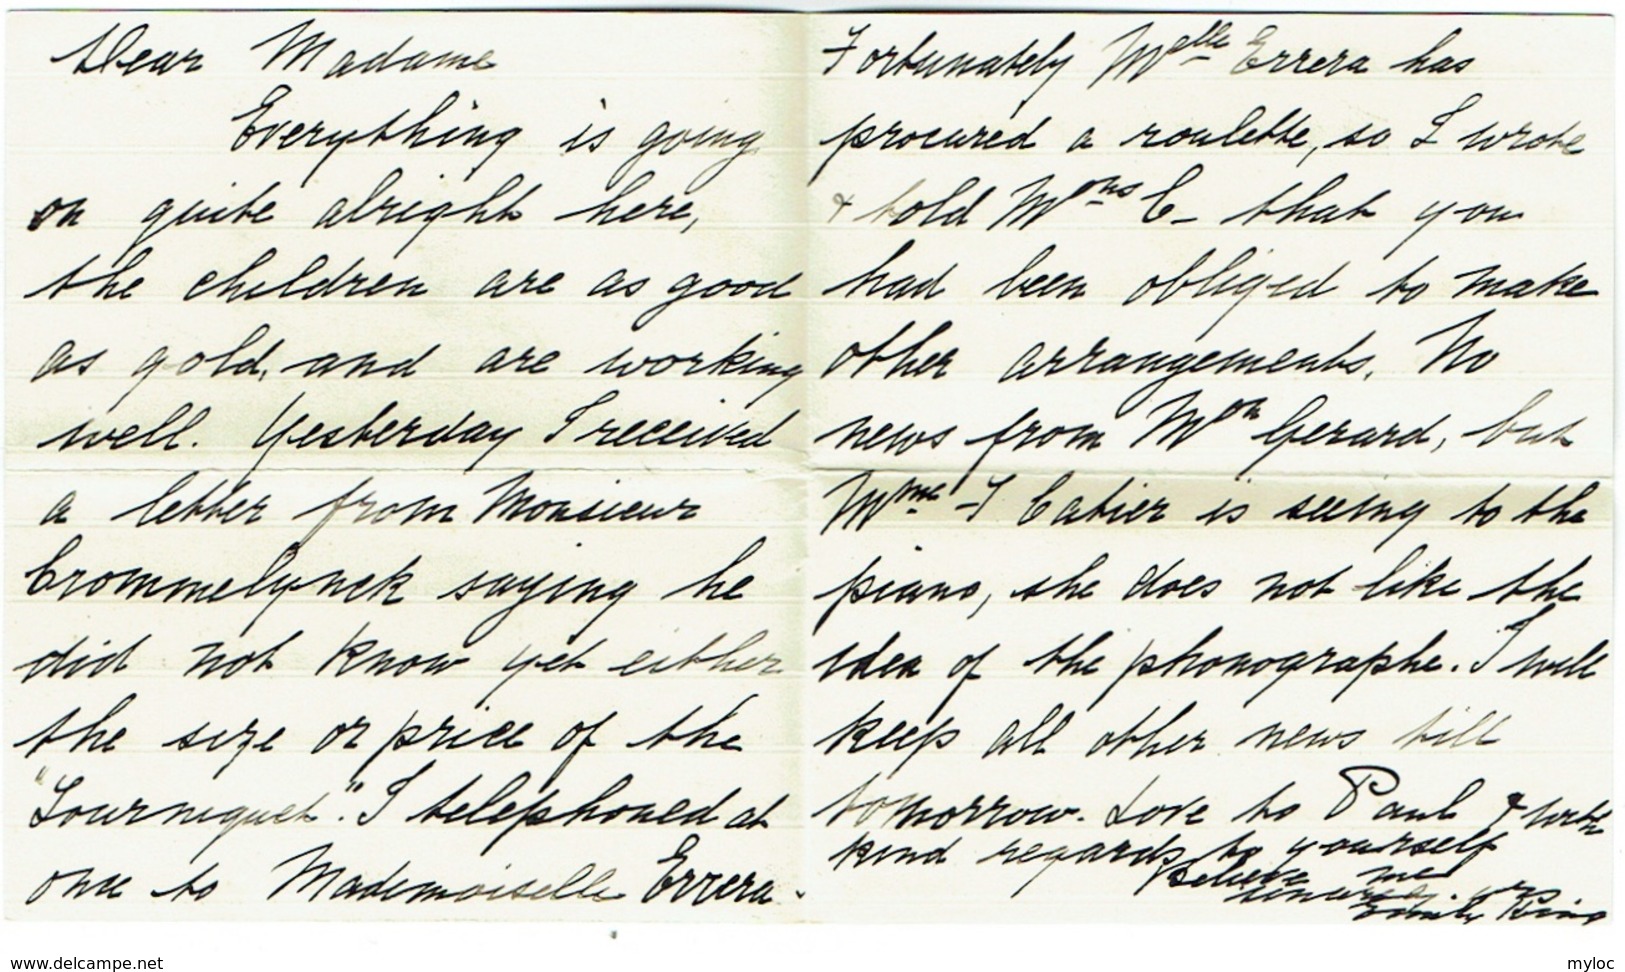 Dear Madame
Everything is going
on quite alright here,
the children are as good
as gold, and are working
well. Yesterday I received
a letter from Monsieur
Crommelynck saying he
did not know yet either
the size or price of the
"Tourniquet". I telephoned at
once to Mademoiselle Errera.
Fortunately Melle Errera has
procured a roulette, so I wrote
& told Mons C- that you
had been obliged to make
other arrangements. No
news from Mon Gerard, but
Mme T Catier is seeing to the
piano, she does not like the
idea of the phonographe. I will
keep all other news till
tomorrow. Love to Paul & with
kind regards to yourself
believe me
sincerely yrs
Emily King
www.delcampe.net
myloc